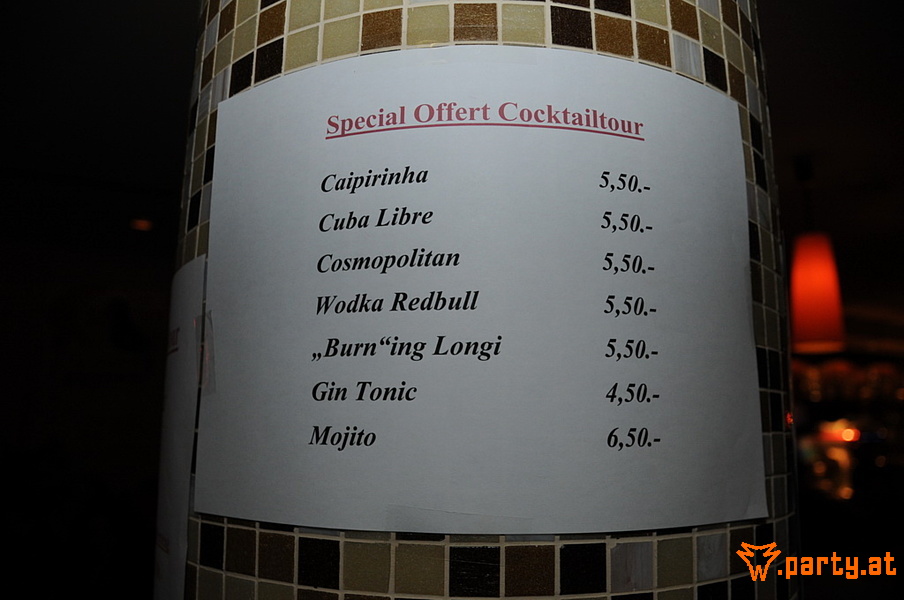 Special Offert Cocktailtour
Caipirinha 5,50.-
Cuba Libre 5,50.-
Cosmopolitan 5,50.-
Wodka Redbull 5,50.-
„Burn“ing Longi 5,50.-
Gin Tonic 4,50.-
Mojito 6,50.-
.party.at